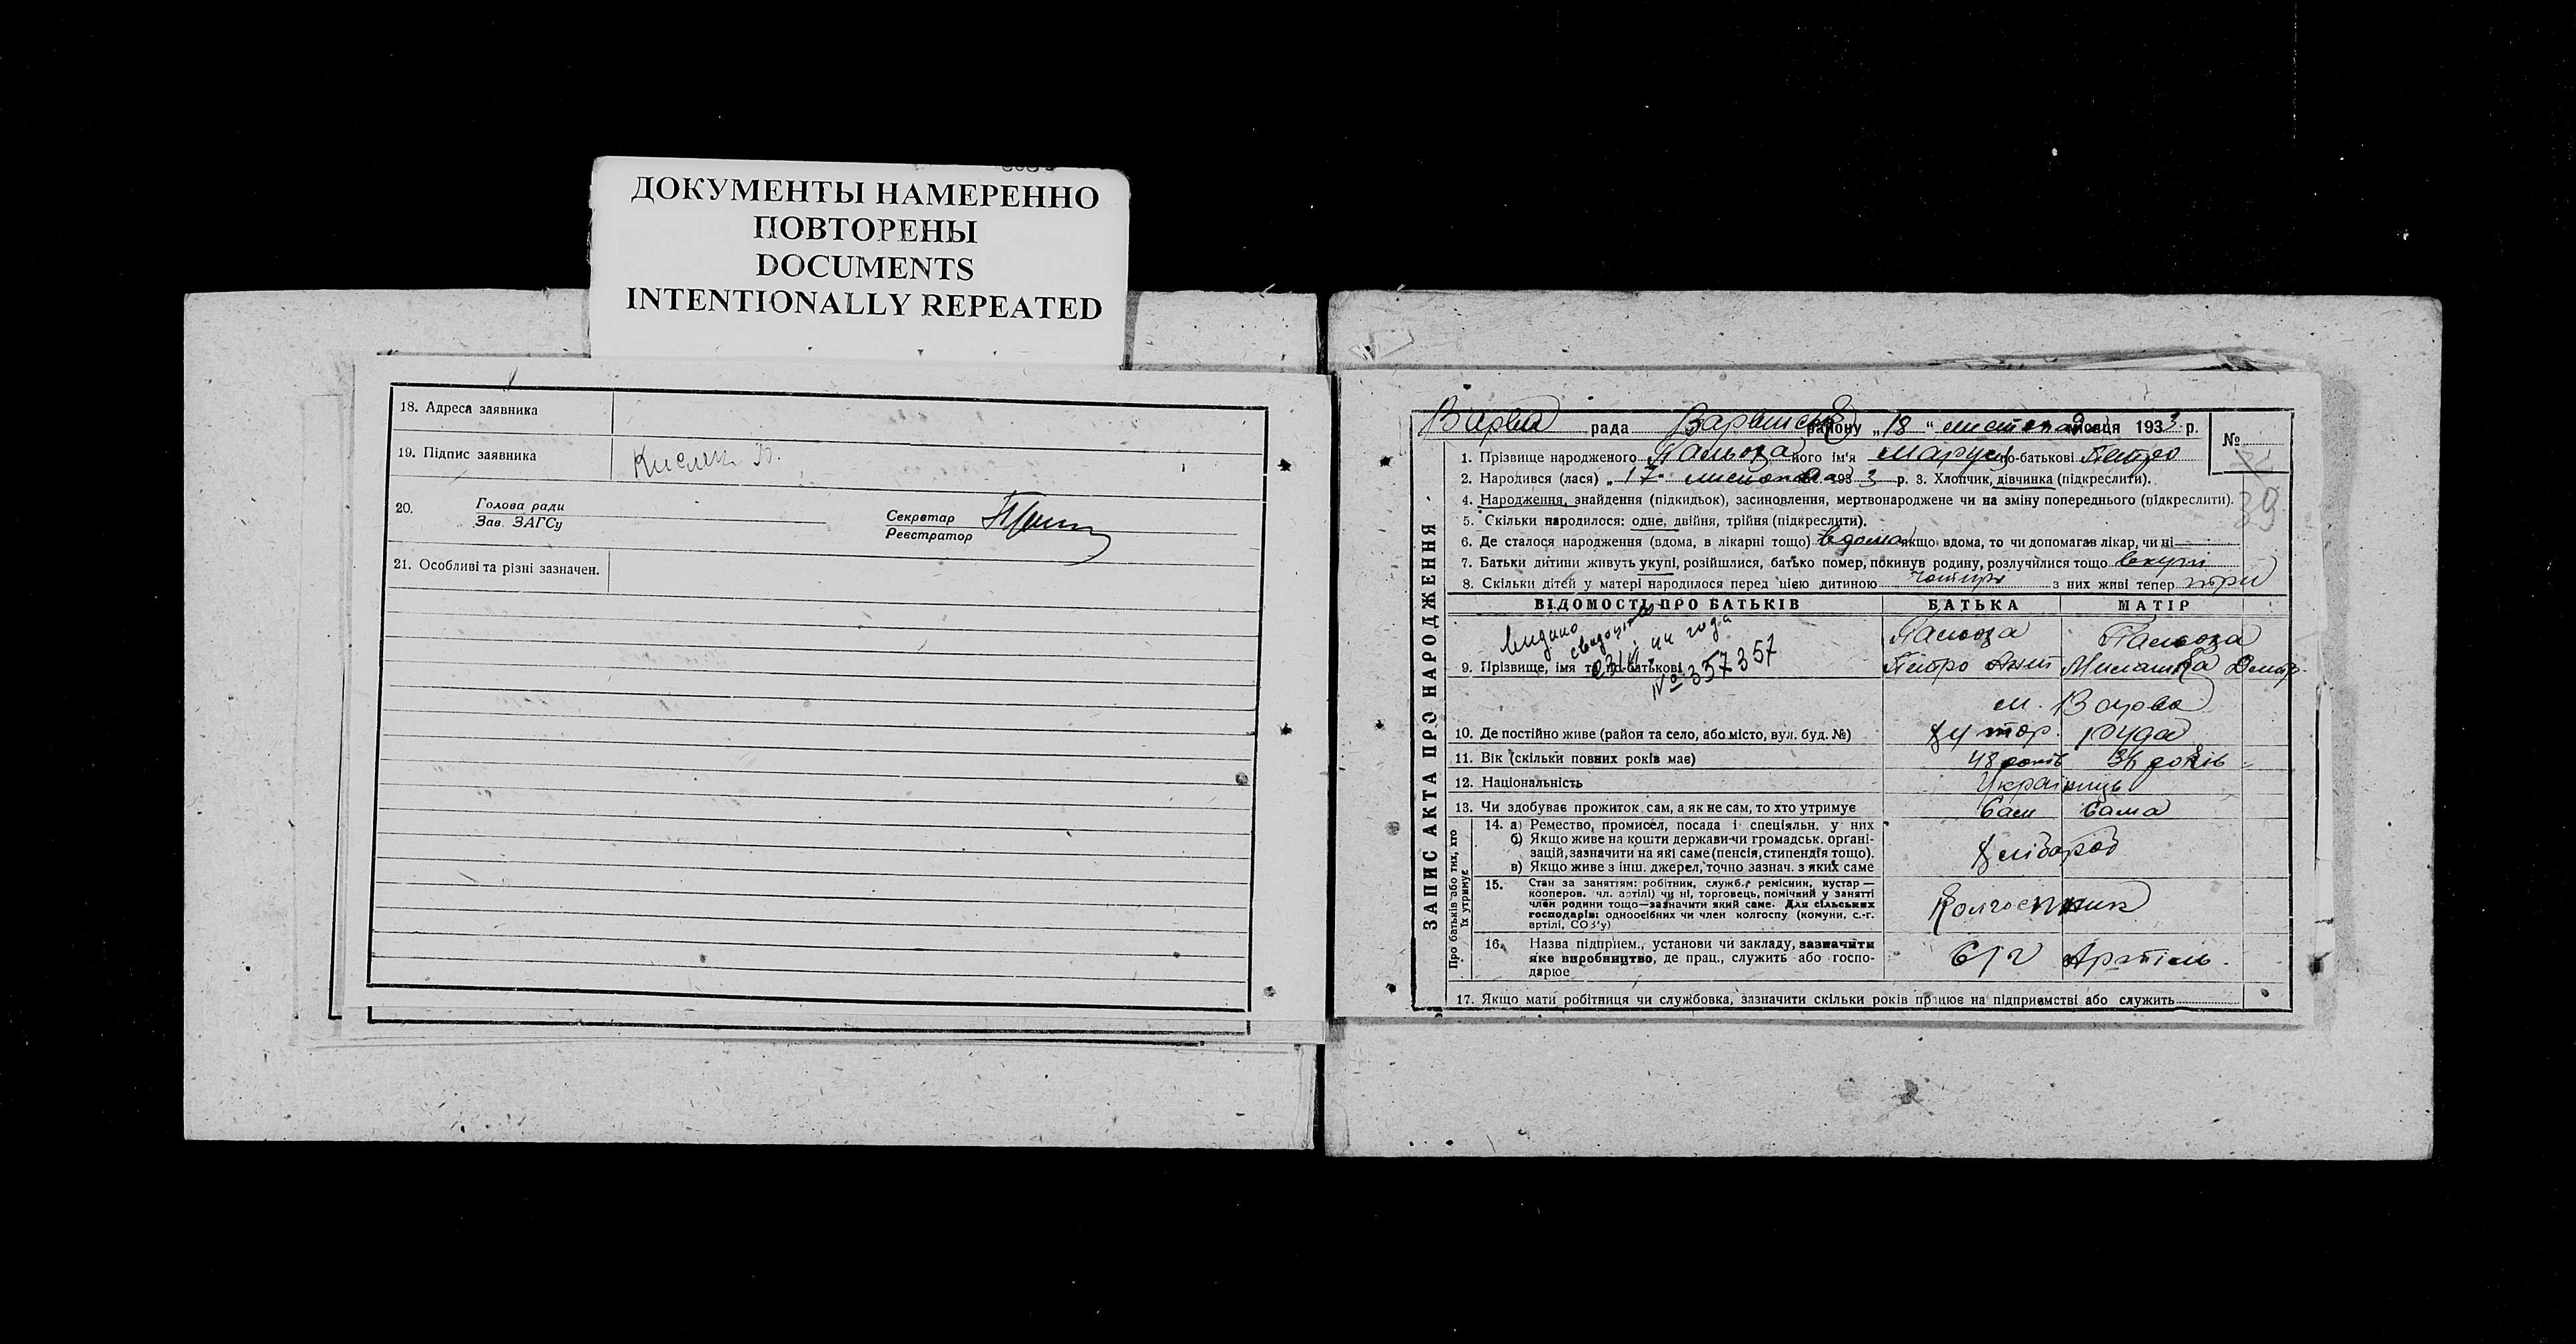 ДОКУМЕНТЫ НАМЕРЕННО
ПОВТОРЕНЫ
DOCUMENTS
INTENTIONALLY REPEATED
18. Адреса заявника
19. Підпис заявника
20. Голова ради
Зав. ЗАГСу
Секретар
Реєстратор
21. Особливі та різні зазначен.
ЗАПИС АКТА ПРО НАРОДЖЕННЯ
Варва рада Варвинськ району „18 “ листопада місяця 1933 р.
№
39
1. Прізвище народженого Пальоза його ім'я Маруся по-батькові Петро
2. Народився (лася) „17“ листопада 1933 р. 3. Хлопчик, дівчинка (підкреслити).
4. Народження, знайдення (підкидьок), засиновлення, мертвонароджене чи на зміну попереднього (підкреслити).
5. Скільки народилося: одне, двійня, трійня (підкреслити).
6. Де сталося народження (вдома, в лікарні тощо) вдома якщо вдома, то чи допомагав лікар, чи ні
7. Батьки дитини живуть укупі, розійшлися, батько помер, покинув родину, розлучилися тощо вкупі
8. Скільки дітей у матері народилося перед цією дитиною чотири з них живі тепер три
ВІДОМОСТЬ ПРО БАТЬКІВ БАТЬКА МАТІР
видано
44 года
№ 357357
Пальоза Пальоза
9. Прізвище, імя та по-батькові Петро Милашка
м. Варва
10. Де постійно живе (район та село, або місто, вул. буд. №) хутор. Руда
11. Вік (скільки повних років має) 48 років 36 років
12. Національність Українець
13. Чи здобуває прожиток сам, а як не сам, то хто утримує Сам Сама
Про батьків або тих, хто їх утримує
14. а) Ремество, промисел, посада і спеціяльн. у них
б) Якщо живе на кошти держави чи громадськ. органі-
зацій, зазначити на які саме (пенсія, стипендія тощо).
в) Якщо живе з інш. джерел, точно зазнач. з яких саме
хлібороб
15. Стан за заняттям: робітник, служб., ремісник, кустар —
кооперов. чл. артілі) чи ні, торговець, помічний у занятті
член родини тощо—зазначити який саме. Для сільських
господарів: одноосібних чи член колгоспу (комуни, с.-г.
артілі, СОЗ'у)
Колгоспник
16. Назва підприєм., установи чи закладу, зазначити
яке виробництво, де прац., служить або госпо-
дарює
С/г Артіль.
17. Якщо мати робітниця чи службовка, зазначити скільки років працює на підприємстві або служить